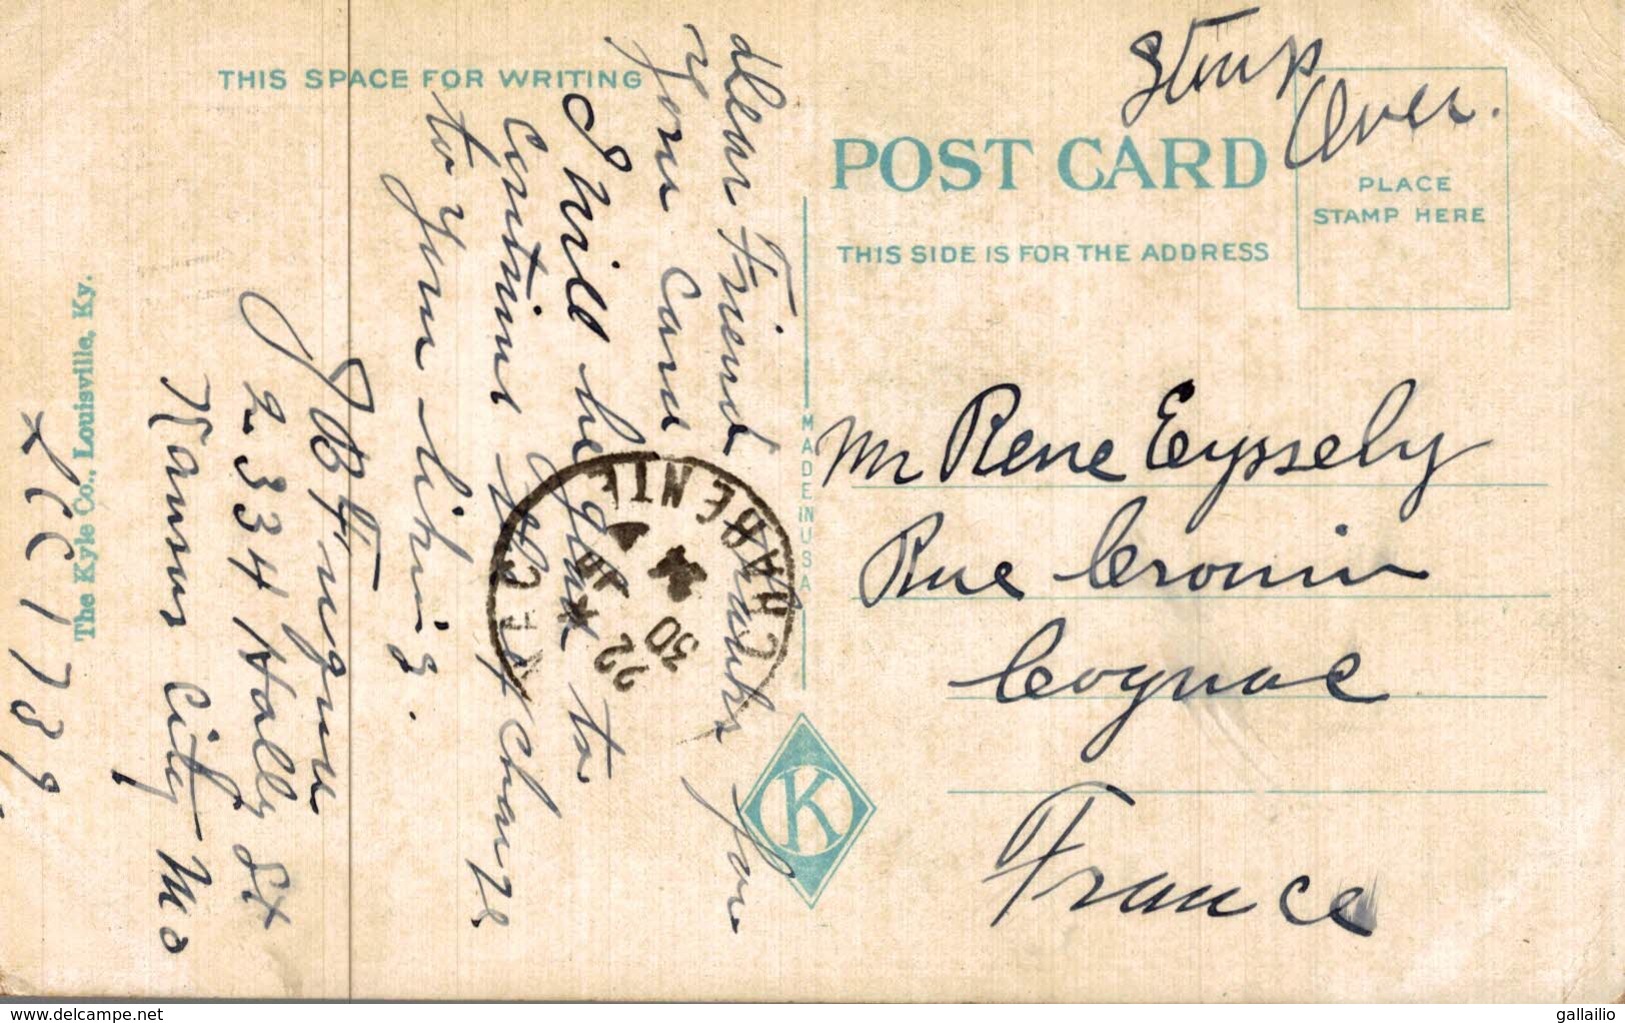 THIS SPACE FOR WRITING
Dear Friend thanks for
your Card
I will be glad to
Continue exchange
to your liking.
2334 Holly St
Kansas City Mo
The Kyle Co., Louisville, Ky.
MADE IN USA
K
Stamp
Over.
POST CARD
PLACE
STAMP HERE
THIS SIDE IS FOR THE ADDRESS
Mr Rene Eyssely
Rue Cronin
Cognac
France
COGNAC
CHARENTE
22
30
www.delcampe.net
gallailio